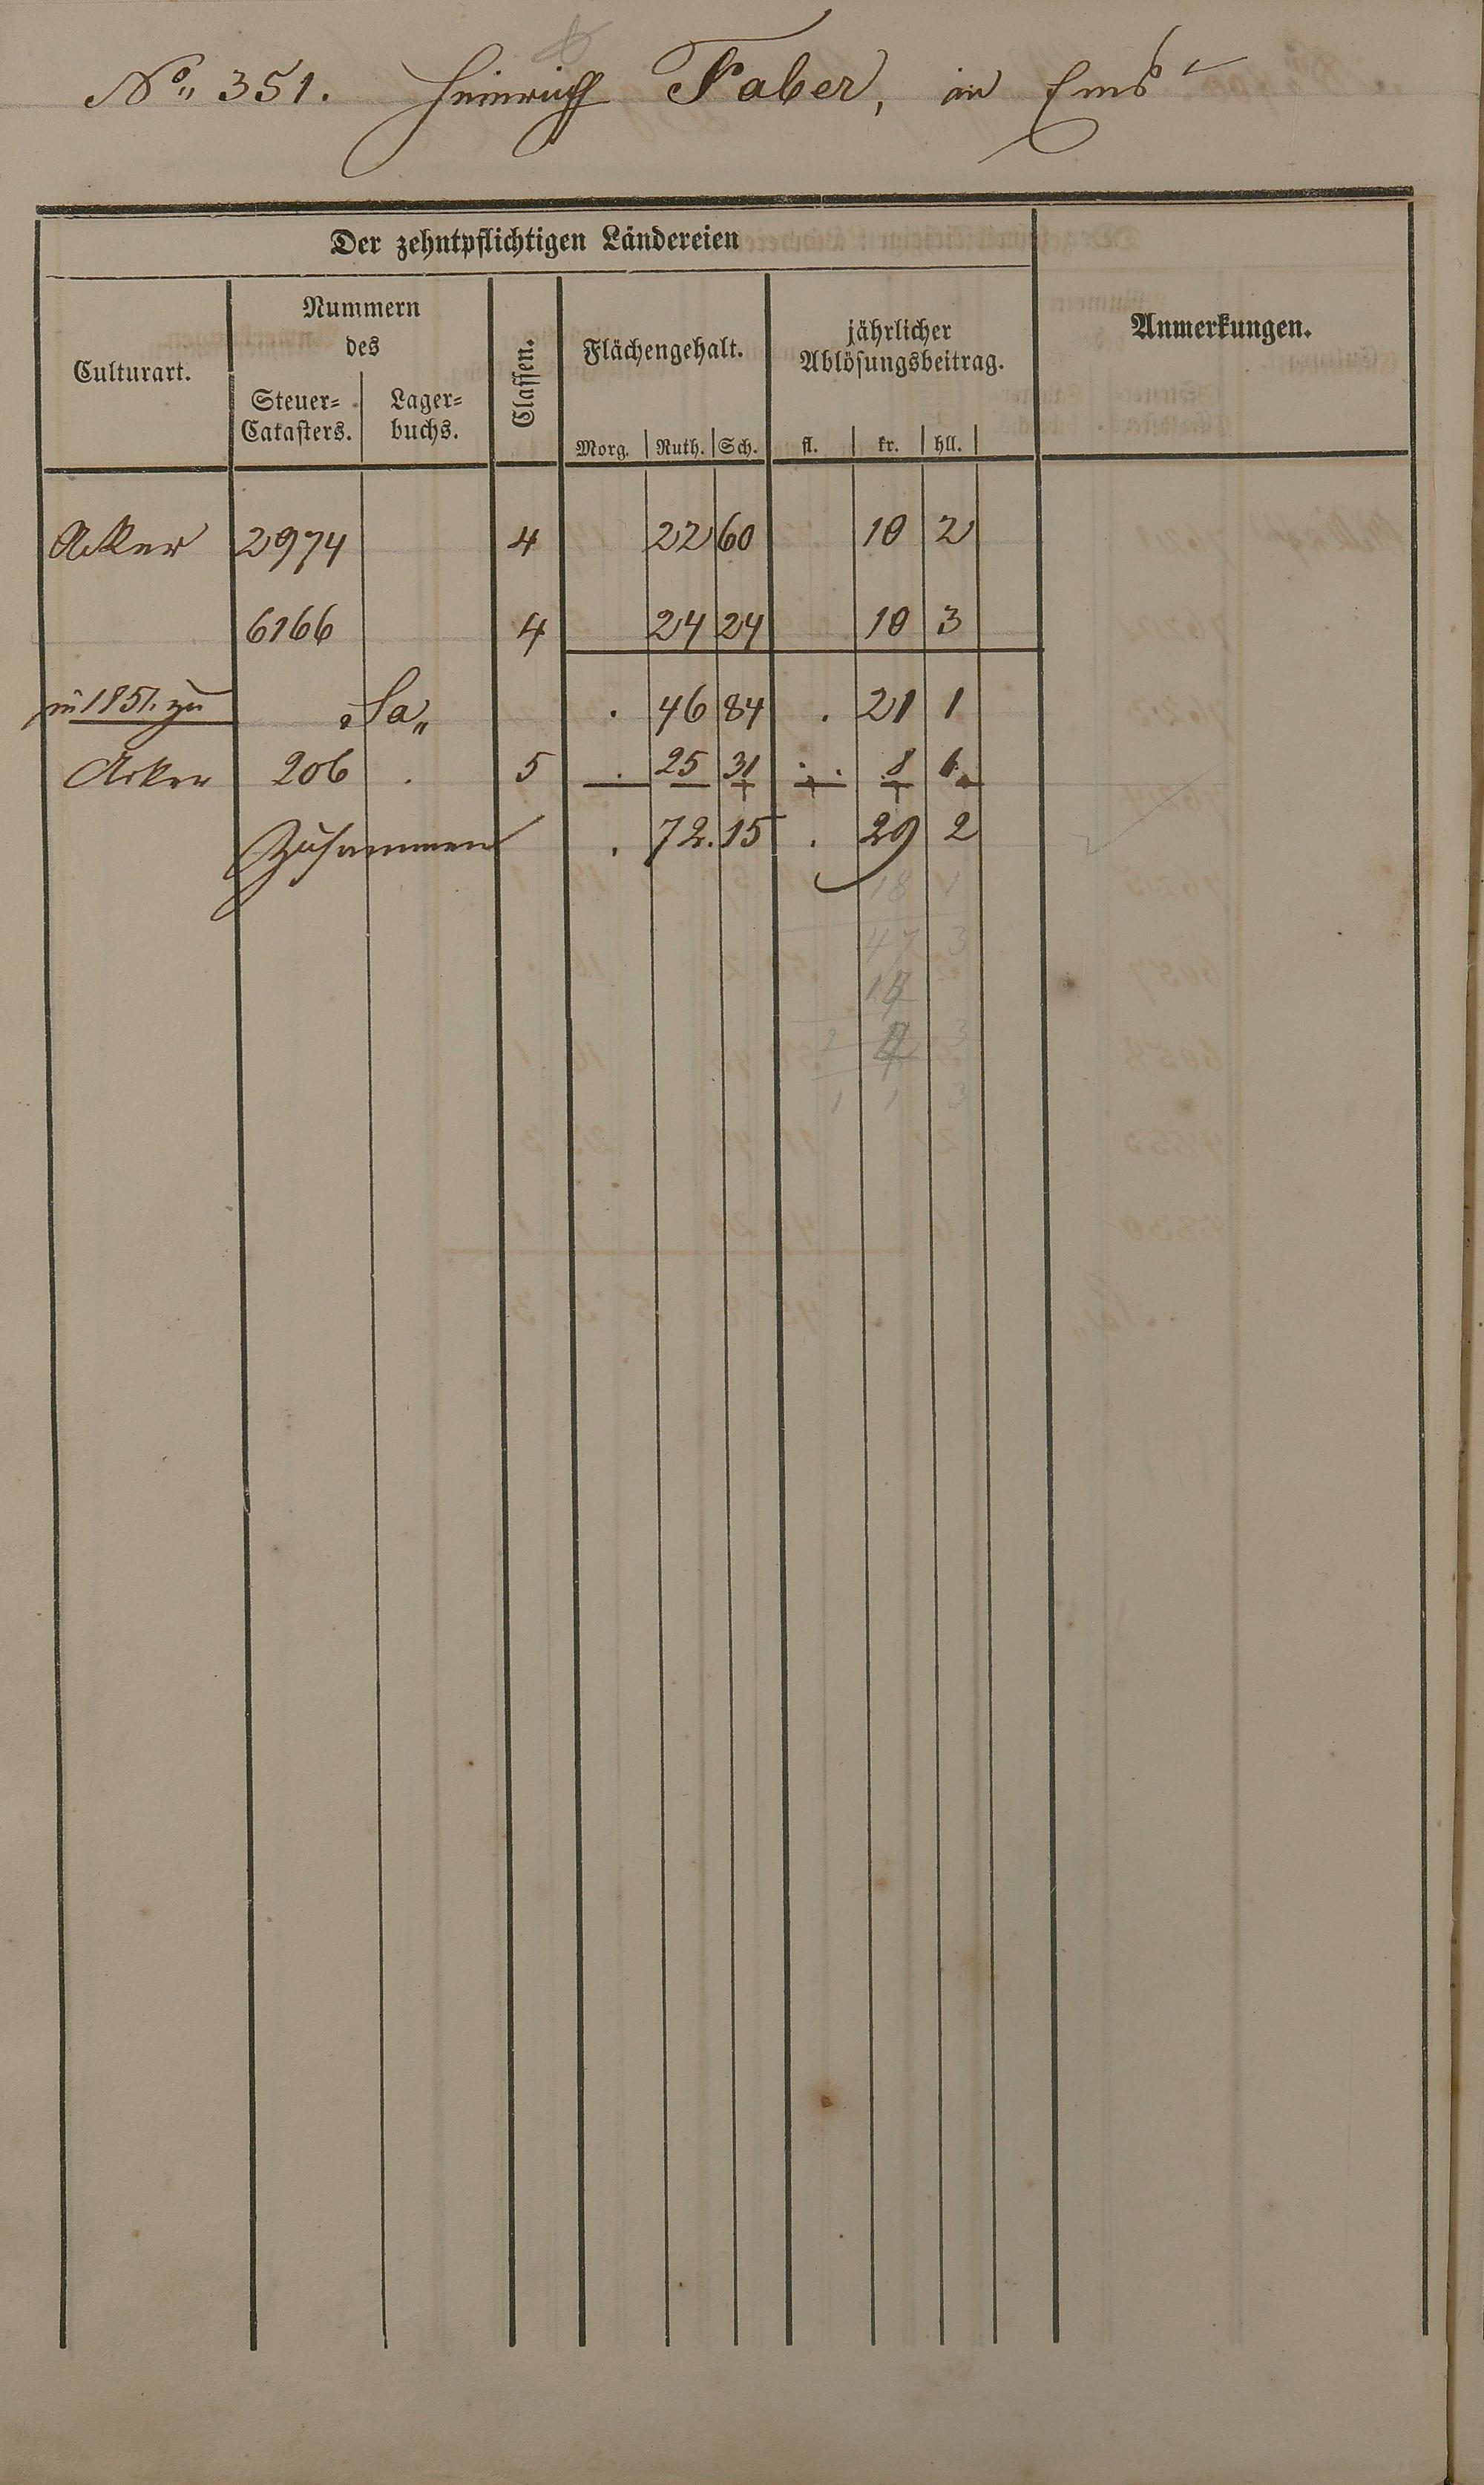 No. 351. Heinrich Faber, in Ems
Der zehntpflichtigen Ländereien
Anmerkungen.
Culturart.
Nummern
des
Steuer=
Catasters.
Lager=
buchs.
Classen.
Flächengehalt.
Morg. Ruth. Sch.
jährlicher
Ablösungsbeitrag.
fl. kr. hll.
Acker 2974 4 22 60 10 2
6166 4 24 24 10 3
in 1851. zu Sa. . 46 84 . 21 1
Acker 206 . 5 . 25 31 . 8 1
Zusammen . 72. 15 . 29 2
18
47 3
18
3
1 1 3